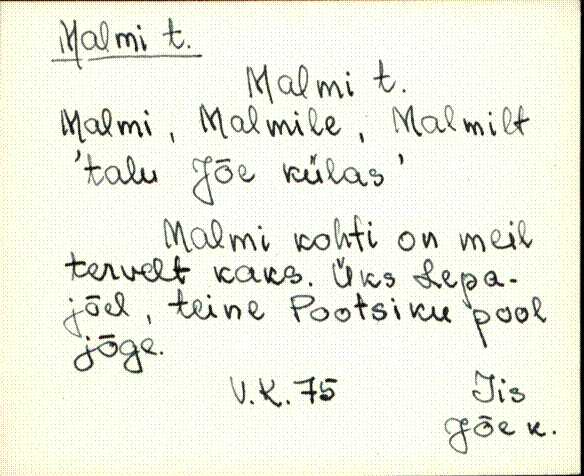 Malmi t.
Malmi t.
Malmi, Malmile, Malmilt
'talu Jõe külas'
Malmi kohti on meil
tervelt kaks. Üks Lepa-
jõel, teine Pootsiku pool
jõge.
V.K. 75 Iis
Jõe k.